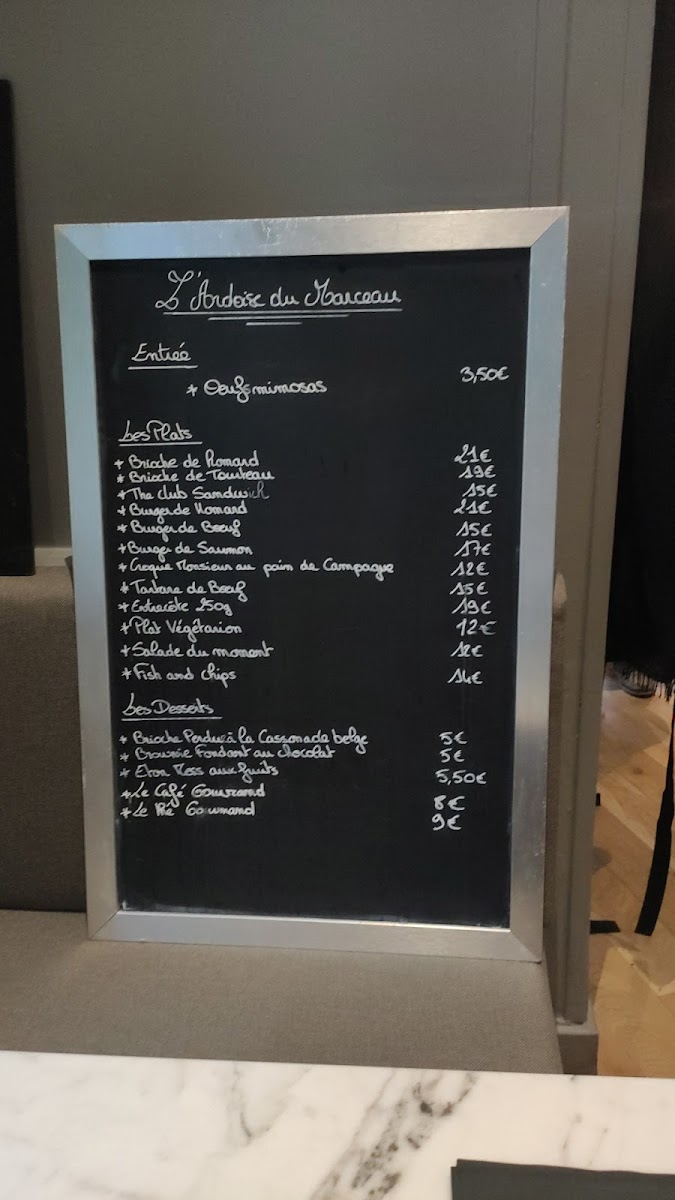 L'Ardoise du Marceau
Entrée
* Oeufs mimosas 3,50€
Les Plats
* Brioche de Homard 21€
* Brioche de Tourteau 19€
* The club Sandwich 15€
* Burger de Homard 21€
* Burger de Bœuf 15€
* Burger de Saumon 17€
* Croque Monsieur au pain de Campagne 12€
* Tartare de Bœuf 15€
* Entrecôte 250g 19€
* Plat Végétarien 12€
* Salade du moment 12€
* Fish and chips 14€
Les Desserts
* Brioche Perdue à la Cassonade belge 5€
* Brownie Fondant au chocolat 5€
* Eton Mess aux fruits 5,50€
* Le Café Gourmand 8€
* Le Thé Gourmand 9€